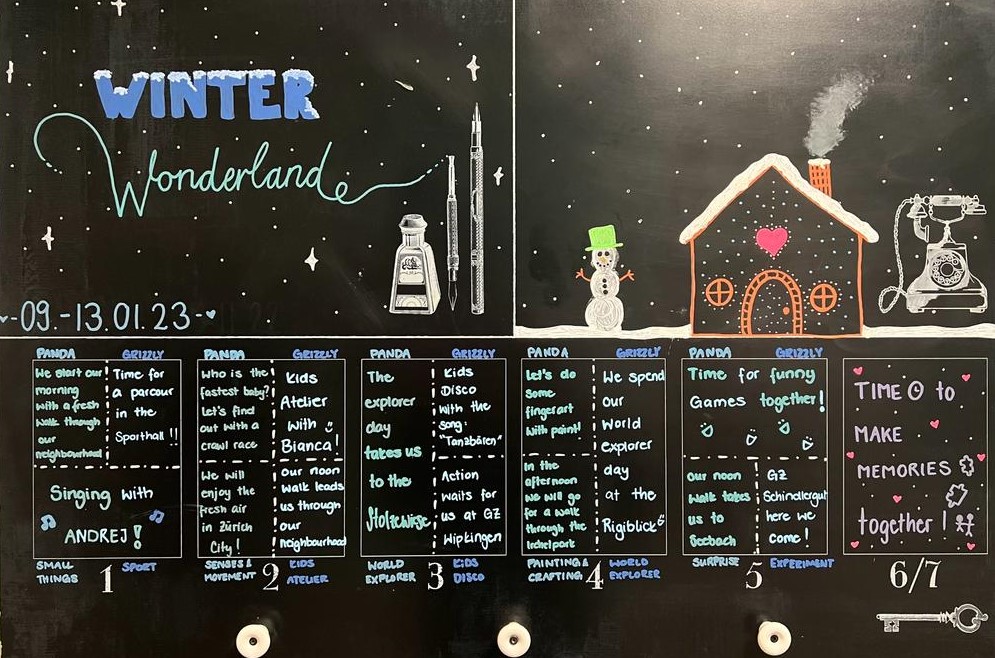 WINTER
Wonderland
09.-13.01.23
PANDA
GRIZZLY
We start our
morning
with a fresh
walk through
our
neighbourhood
Time for
a parcour
in the
Sporthall !!
Singing with
ANDREJ!
SMALL
THINGS
1
SPORT
PANDA
GRIZZLY
Who is the
fastest baby?
Let's find
out with a
crawl race
Kids
Atelier
with
Bianca!
We will
enjoy the
fresh air
in Zürich
City!
our noon
walk leads
us through
our
neighbourhood
SENSES &
MOVEMENT
2
KIDS
ATELIER
PANDA
GRIZZLY
The
explorer
day
takes us
to the
Stolzewiese
Kids
Disco
with the
song:
"Tanzbären"
Action
waits for
us at GZ
Wipkingen
WORLD
EXPLORER
3
KIDS
DISCO
PANDA
GRIZZLY
Let's do
some
fingerart
with paint!
In the
afternoon
we will go
for a walk
through the
Irchelpark
We spend
our
world
explorer
day
at the
Rigiblick
PAINTING &
CRAFTING
4
WORLD
EXPLORER
PANDA
GRIZZLY
Time for funny
Games together!
our noon
walk takes
us to
Seebach
GZ
Schindlergut
here we
come!
SURPRISE
5
EXPERIMENT
TIME to
MAKE
MEMORIES
together!
6/7